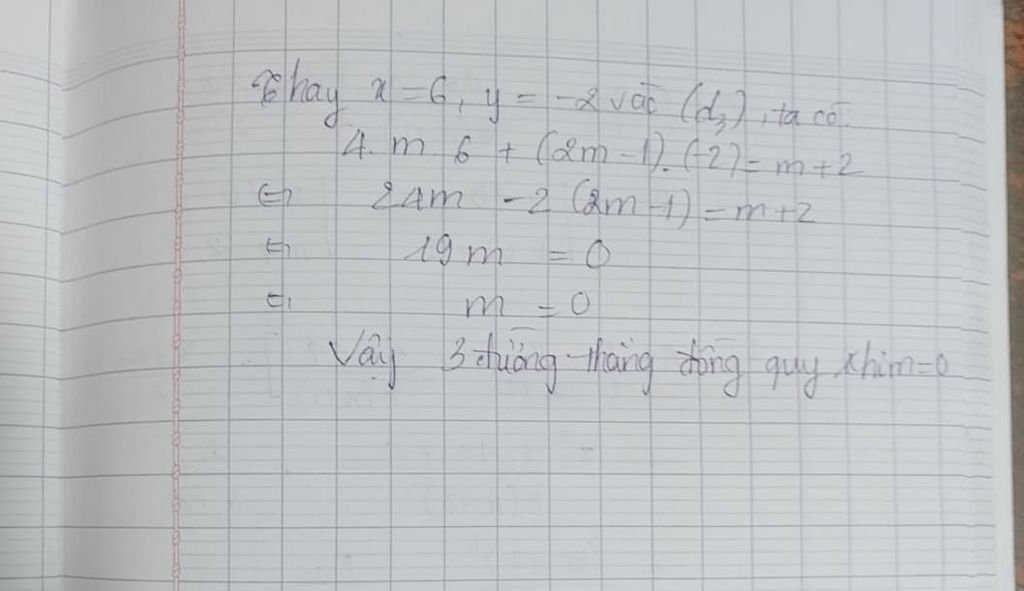 Thay x = 6, y = -2 vào (d₃), ta có
4. m 6 + (2m - 1). (-2) = m + 2
⇔ 24m - 2 (2m - 1) = m + 2
⇔ 19 m = 0
⇔ m = 0
Vậy 3 đường thẳng đồng quy khi m = 0